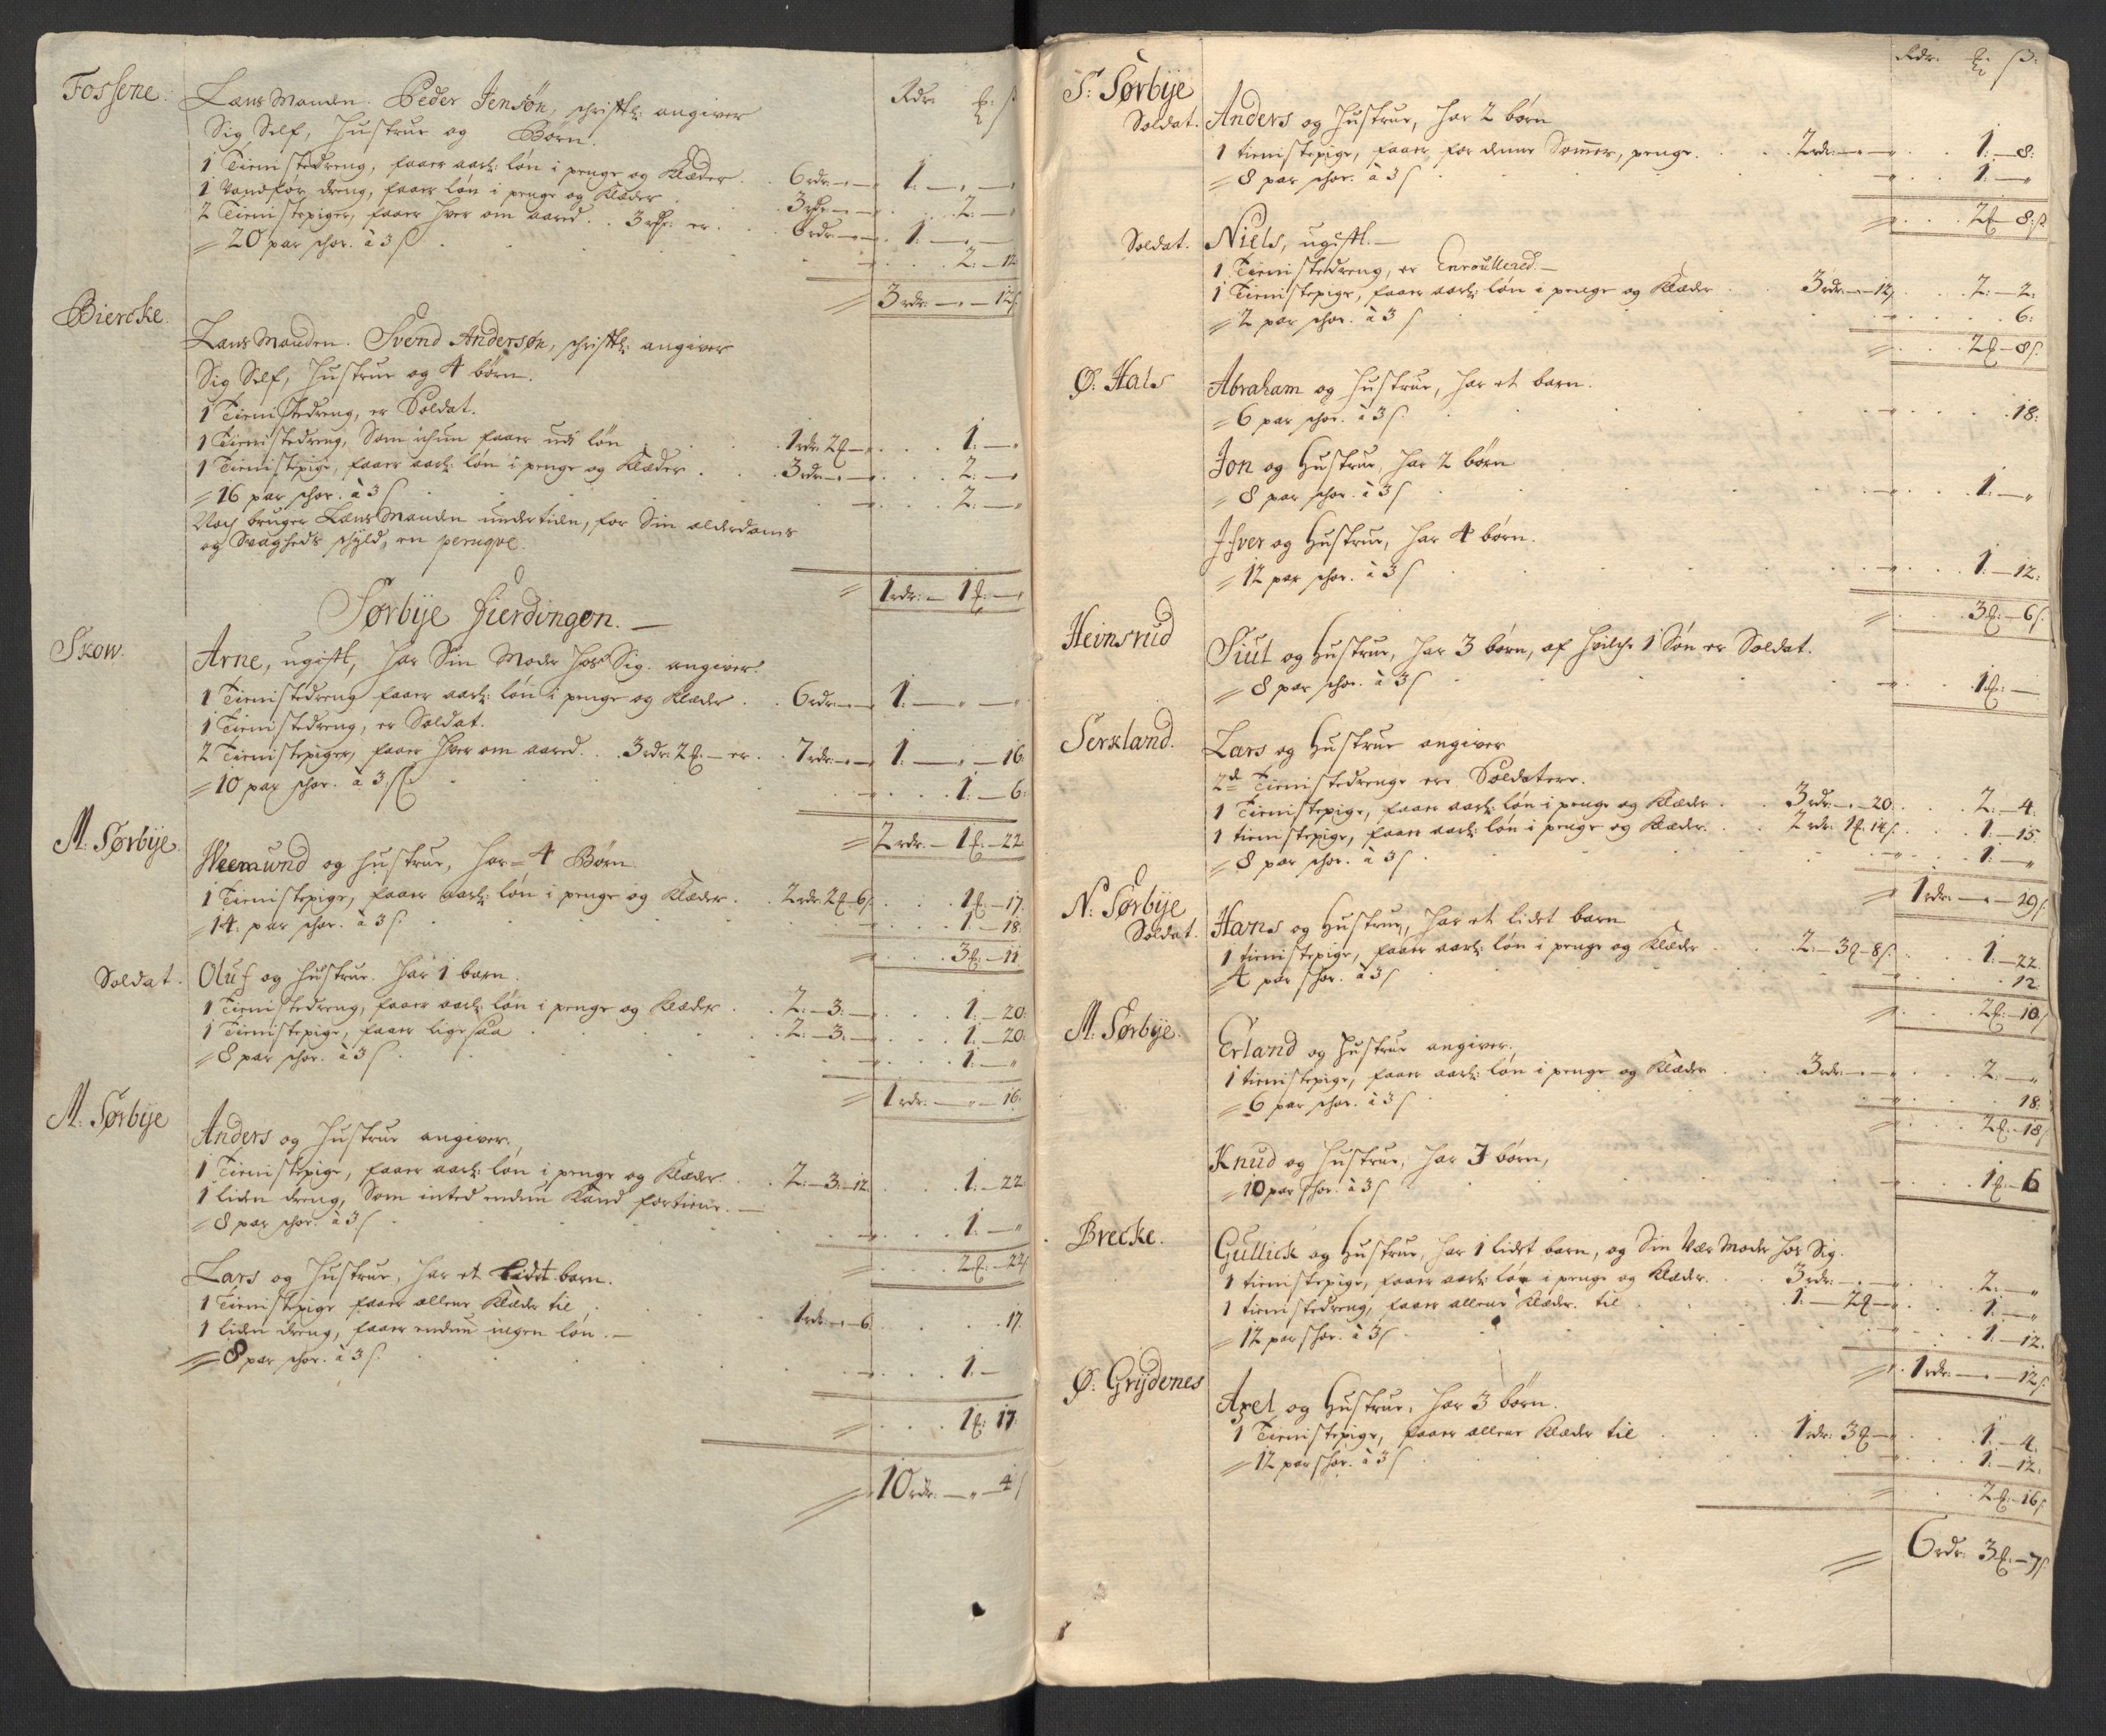 Rdr: ℔: ß
Fossene.
Lens Manden. Peder Jensøn, schriftl: angiver
Sig Self, Hustrue og Børn.
1 Tienistedreng, faaer aarl: løn i penge og Klæder . . 6 rdr: — 1: — —
1 Vandför dreng, faaer løn i penge og Klæder . 3 rdr — . . 2: —
2 Tienistepiger, faaer hver om aared . . 3 rdr: er . . 6 rdr: — 1: — —
20 par schoe. à 3 ß . . . 2: — 12
3 rdr: — 12 ß
Biercke.
Lens Manden. Svend Andersøn, schriftl: angiver
Sig Self, Hustrue og 4 børn.
1 Tienistedreng, er Soldat.
1 Tienistedreng, Som ichun faaer udi løn . . 1 rdr 2 ℔ — . . 1: —
1 Tienistepige, faaer aarl: løn i penge og Klæder . . 3 rdr: — . . 2: —
16 par schoe. à 3 ß . . . 2: —
Noch bruger Lens Manden undertiden, for Sin alderdoms
og Svagheds schyld, en peruqve.
1 rdr: — 1 ℔: —
Sørbÿe Fierdingen. —
Skow.
Arne, ugift, har Sin Moder hos Sig. angiver.
1 Tienistedreng faaer aarl: løn i penge og Klæder . . 6 rdr: — 1: — —
1 Tienistedreng, er Soldat.
2 Tienistepiger, faaer hver om aared . . 3 rdr: 2 ℔: — er . . 7 rdr: — 1: — 16
10 par schoe. à 3 ß . . . 1: — 6:
2 rdr: — 1 ℔: — 22
M. Sørbÿe.
Weemund og hustrue, har 4 Børn
1 Tienistepige, faaer aarl: løn i penge og Klæder . . 2 rdr 2 ℔ — 6 ß . . 1 ℔ — 17.
14. par schoe. à 3 ß . . . 1 — 18:
3 ℔: — 11
Soldat. Oluf og hustrue. har 1 barn.
1 Tienistedreng, faaer aarl: løn i penge og Klæder . . 2: — 3: — . . 1: — 20:
1 Tienistepige, faaer ligesaa . . 2: — 3: — . . 1: — 20:
8 par schoe. à 3 ß . . . 1: —
1 rdr: — 16:
M. Sørbÿe
Anders og Hustrue angiver.
1 Tienistepige, faaer aarl: løn i penge og Klæder . . 2: — 3: — 12: . . 1: — 22
1 liden dreng, Som inted endnu Kand fortiene. —
8 par schoe. à 3 ß . . . 1: —
2 ℔: — 22 ß
Lars og Hustrue, har et Lidet barn.
1 Tienistepige faaer allene Klæder til . . 1 rdr: — 6 . . 17.
1 liden dreng, faaer endnu ingen løn. —
8 par schoe. à 3 ß . . . 1: —
1 ℔: 17
10 rdr: — 4 ß
Rdr: ℔: ß:
S: Sørbÿe
Soldat. Anders og Hustrue, har 2 børn
1 tienistepige, faaer for denne Sommer, penge . . 2 rdr: — . . 1: — 8:
8 par schoe. à 3 ß . . . 1: —
2 ℔ — 8: ß
Soldat. Niels, ugift. —
1 Tienistedreng, er Enroullered. —
1 Tienistepige, faaer aarl: løn i penge og Klæder . . 3 rdr: — 12 . . 2: — 2:
2 par schoe. à 3 ß . . . 6:
2 ℔ — 8 ß.
Ø: Hals
Abraham og Hustrue, har et barn.
6 par schoe. à 3 ß . . . 18:
Jon og Hustrue, har 2 børn
8 par schoe. à 3 ß . . . 1: —
Ifver og Hustrue, har 4 børn.
12 par schoe. à 3 ß . . . 1: — 12:
3 ℔: — 6 ß.
Heinsrud
Siul og Hustrue, har 3 børn, af hvilche 1 Søn er Soldat.
8 par schoe. à 3 ß . . . 1 ℔: —
Serkland.
Lars og Hustrue angiver
2de Tienistedrenge ere Soldatere.
1 Tienistepige, faaer aarl: løn i penge og Klæder . . 3 rdr: — 20 . . 2: — 4.
1 tienistepige, faaer aarl: løn i penge og Klæder . . 2 rdr: 1 ℔: 14 ß . . 1: — 15.
8 par schoe. à 3 ß . . . 1: —
1 rdr: — 29 ß
N: Sørbÿe
Soldat. Hans og Hustrue, har et lidet barn
1 tienistepige, faaer aarl: løn i penge og Klæder . . 2: — 3 ℔ — 8 ß . . 1: — 22.
4 par schoe. à 3 ß . . . 12.
2 ℔: — 10 ß
M. Sørbÿe.
Erland og Hustrue angiver.
1 tienistepige, faaer aarl: løn i penge og Klæder . . 3 rdr: — . . 2: —
6 par schoe. à 3 ß . . . 18:
2 ℔: — 18 ß
Knud og Hustrue, har 3 børn,
10 par schoe. à 3 ß . . . 1 ℔: — 6
Brecke.
Gullick og Hustrue, har 1 lidet barn, og Sin Vær Moder hos Sig.
1 tienistepige, faaer aarl: løn i penge og Klæder . . 3 rdr: — . . 2: —
1 tienistedreng, faaer allene Klæder til . . 1: — 2 ℔ — . . 1: —
12 par schoe. à 3 ß . . . 1: — 12.
1 rdr: — 12 ß.
Ø: Grÿdenes
Axel og Hustrue, har 3 børn.
1 Tienistepige, faaer allene Klæder til . . 1 rdr: 3 ℔ — . . 1: — 4.
12 par schoe. à 3 ß . . . 1: — 12:
2 ℔: — 16 ß.
6 rdr: 3 ℔: — 7 ß.